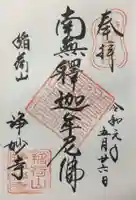 奉拝
令和元年
五月廿六日
南無釋迦牟尼佛
稲荷山
浄妙寺